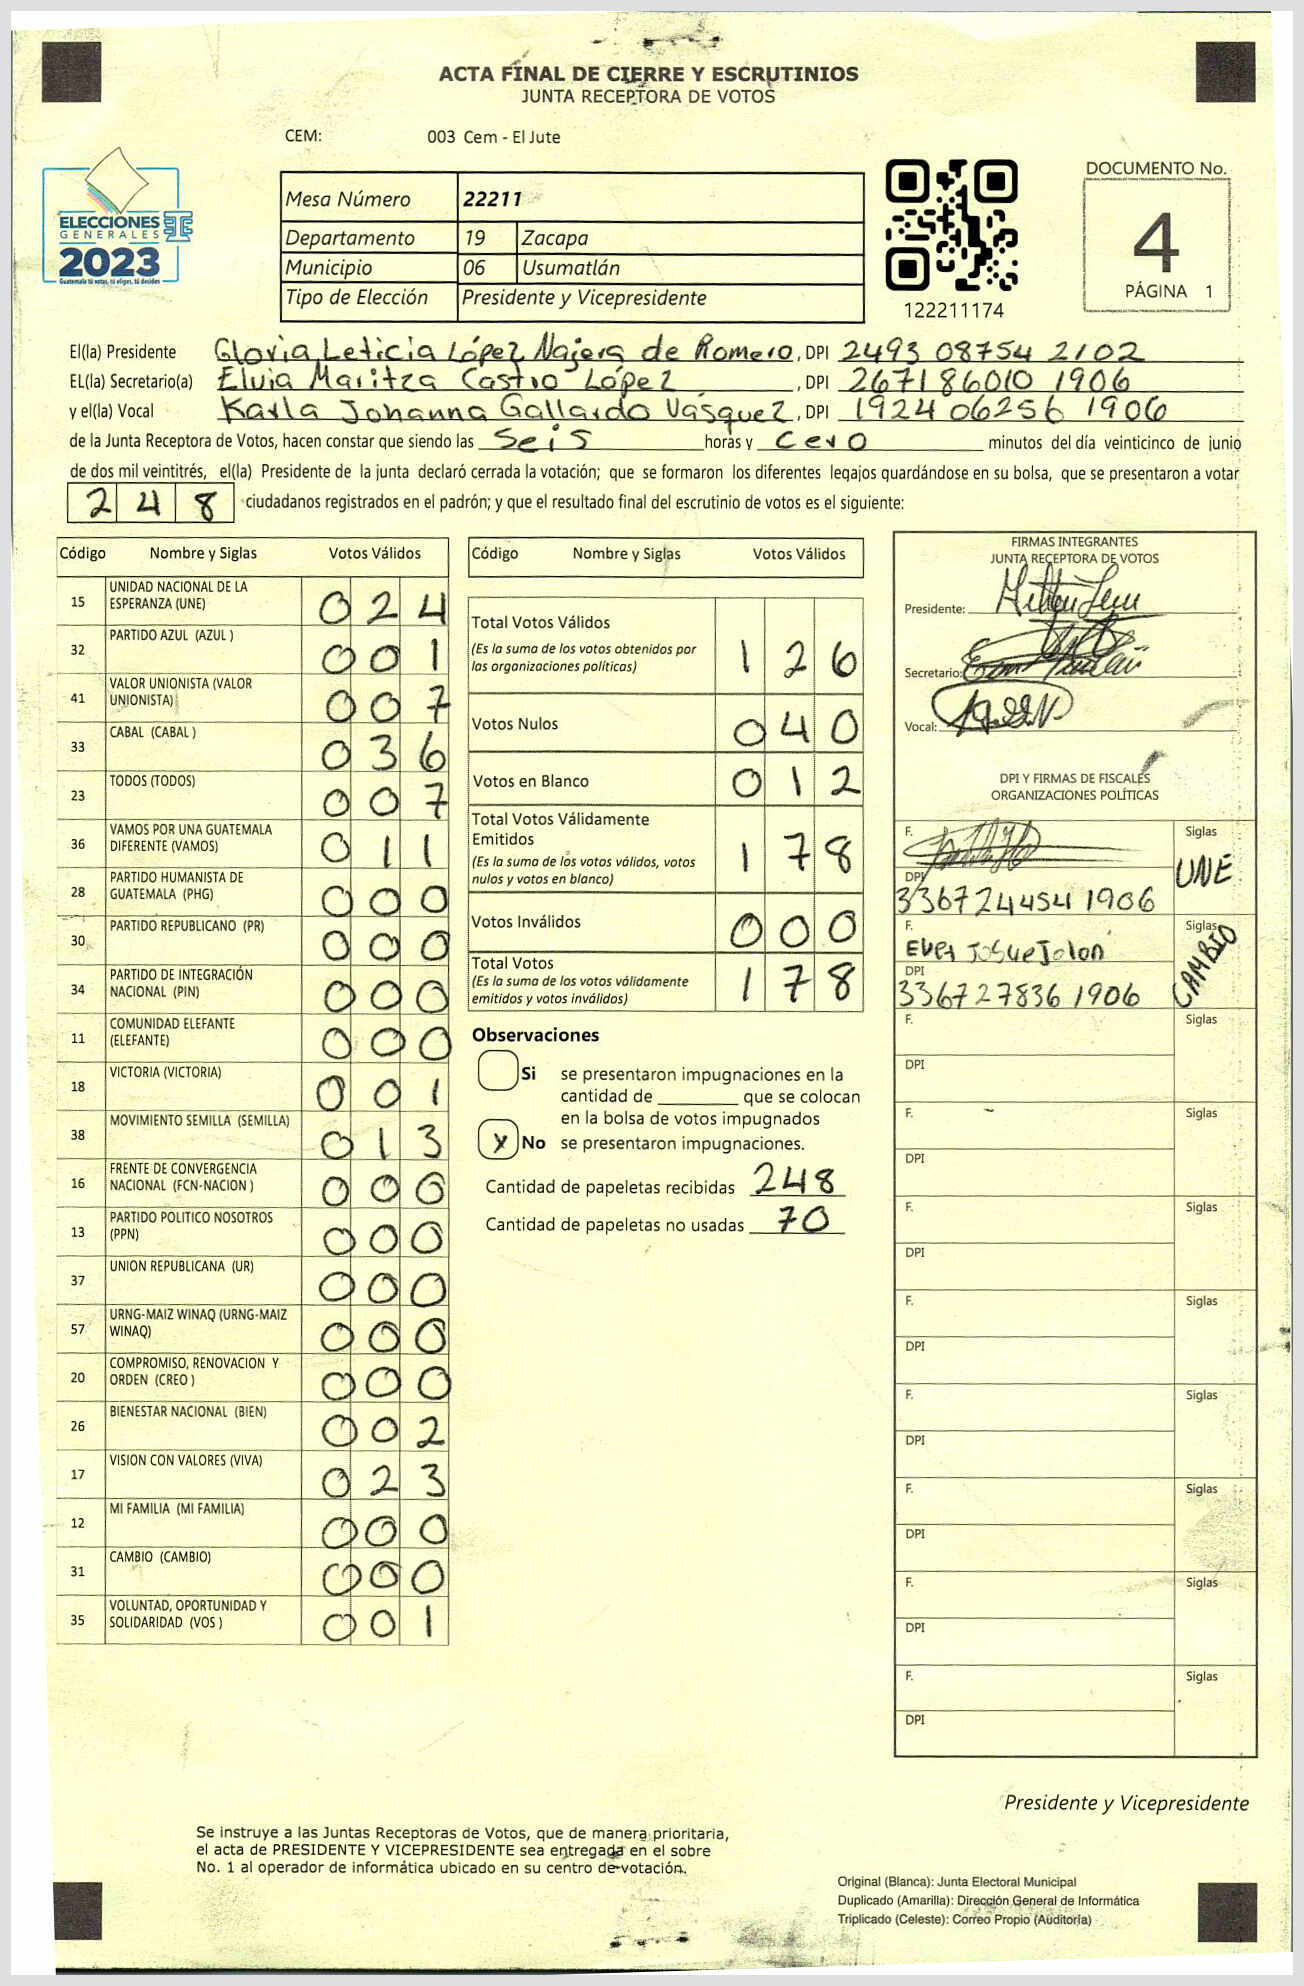 ACTA FINAL DE CIERRE Y ESCRUTINIOS
JUNTA RECEPTORA DE VOTOS
CEM: 003 Cem - El Jute
ELECCIONES
GENERALES
2023
Guatemala tú votas, tú eliges, tú decides
Mesa Número 22211
Departamento 19 Zacapa
Municipio 06 Usumatlán
Tipo de Elección Presidente y Vicepresidente
122211174
DOCUMENTO No.
4
PÁGINA 1
El(la) Presidente Gloria Leticia López Najera de Romero, DPI 2493 08754 2102
EL(la) Secretario(a) Elvia Maritza Castro López, DPI 2671 86010 1906
y el(la) Vocal Karla Johanna Gallardo Vásquez, DPI 1924 06256 1906
de la Junta Receptora de Votos, hacen constar que siendo las Seis horas y Cero minutos del día veinticinco de junio
de dos mil veintitrés, el(la) Presidente de la junta declaró cerrada la votación; que se formaron los diferentes legajos guardándose en su bolsa, que se presentaron a votar
2 4 8 ciudadanos registrados en el padrón; y que el resultado final del escrutinio de votos es el siguiente:
Código Nombre y Siglas Votos Válidos
15 UNIDAD NACIONAL DE LA ESPERANZA (UNE) 0 2 4
32 PARTIDO AZUL (AZUL ) 0 0 1
41 VALOR UNIONISTA (VALOR UNIONISTA) 0 0 7
33 CABAL (CABAL ) 0 3 6
23 TODOS (TODOS) 0 0 7
36 VAMOS POR UNA GUATEMALA DIFERENTE (VAMOS) 0 1 1
28 PARTIDO HUMANISTA DE GUATEMALA (PHG) 0 0 0
30 PARTIDO REPUBLICANO (PR) 0 0 0
34 PARTIDO DE INTEGRACIÓN NACIONAL (PIN) 0 0 0
11 COMUNIDAD ELEFANTE (ELEFANTE) 0 0 0
18 VICTORIA (VICTORIA) 0 0 1
38 MOVIMIENTO SEMILLA (SEMILLA) 0 1 3
16 FRENTE DE CONVERGENCIA NACIONAL (FCN-NACION ) 0 0 0
13 PARTIDO POLITICO NOSOTROS (PPN) 0 0 0
37 UNION REPUBLICANA (UR) 0 0 0
57 URNG-MAIZ WINAQ (URNG-MAIZ WINAQ) 0 0 0
20 COMPROMISO, RENOVACION Y ORDEN (CREO ) 0 0 0
26 BIENESTAR NACIONAL (BIEN) 0 0 2
17 VISION CON VALORES (VIVA) 0 2 3
12 MI FAMILIA (MI FAMILIA) 0 0 0
31 CAMBIO (CAMBIO) 0 0 0
35 VOLUNTAD, OPORTUNIDAD Y SOLIDARIDAD (VOS ) 0 0 1
Código Nombre y Siglas Votos Válidos
Total Votos Válidos 1 2 6
(Es la suma de los votos obtenidos por
las organizaciones políticas)
Votos Nulos 0 4 0
Votos en Blanco 0 1 2
Total Votos Válidamente
Emitidos 1 7 8
(Es la suma de los votos válidos, votos
nulos y votos en blanco)
Votos Inválidos 0 0 0
Total Votos 1 7 8
(Es la suma de los votos válidamente
emitidos y votos inválidos)
Observaciones
Si se presentaron impugnaciones en la
cantidad de ________ que se colocan
en la bolsa de votos impugnados
X No se presentaron impugnaciones.
Cantidad de papeletas recibidas 248
Cantidad de papeletas no usadas 70
FIRMAS INTEGRANTES
JUNTA RECEPTORA DE VOTOS
Presidente:
Secretario:
Vocal:
DPI Y FIRMAS DE FISCALES
ORGANIZACIONES POLÍTICAS
F. Siglas
UNE
DPI
33672 4454 1906
F. Siglas
CAMBIO
DPI
33672 7836 1906
F. Siglas
DPI
F. Siglas
DPI
F. Siglas
DPI
F. Siglas
DPI
F. Siglas
DPI
F. Siglas
DPI
F. Siglas
DPI
F. Siglas
DPI
Presidente y Vicepresidente
Se instruye a las Juntas Receptoras de Votos, que de manera prioritaria,
el acta de PRESIDENTE Y VICEPRESIDENTE sea entregada en el sobre
No. 1 al operador de informática ubicado en su centro de votación.
Original (Blanca): Junta Electoral Municipal
Duplicado (Amarilla): Dirección General de Informática
Triplicado (Celeste): Correo Propio (Auditoría)